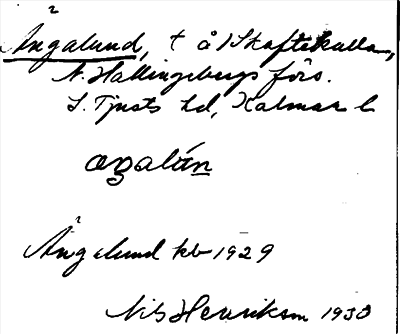 Ängalund, t å 1 Skaftekulla,
N. Hallingebergs förs.
S. Tjusts hd, Kalmar l
ängalún
Ängelund kb 1929
Nils Henrikson 1930